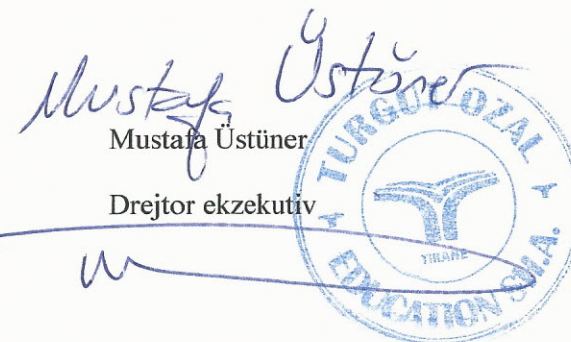 Mustafa Üstüner
Mustafa Üstüner
Drejtor ekzekutiv
TURGUT OZAL
TIRANE
EDUCATION SH.A.